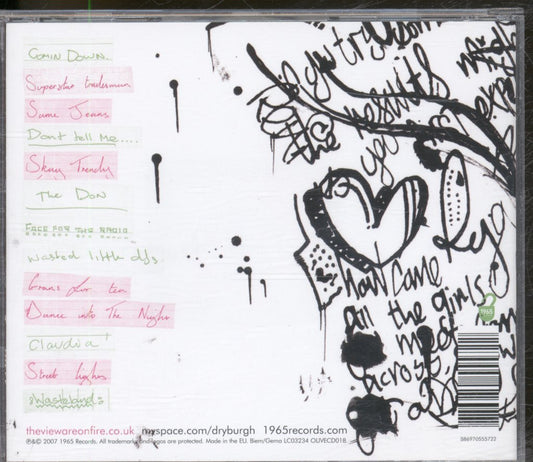 Comin Down
Superstar tradesman
Same Jeans
Dont tell Me....
Skag Trendy
The Don
FACE FOR THE RADIO
Wasted little djs
Grans for tea
Dance into The Night
Claudia
Street lights
Wastelands
if you try
the results
middle
how come
all the girls
most
across
1965
086970555722
theviewareonfire.co.uk myspace.com/dryburgh 1965records.com
℗&© 2007 1965 Records. All trademarks and logos are protected. Made in the EU. Biem/Gema LC03234 OLIVECD018